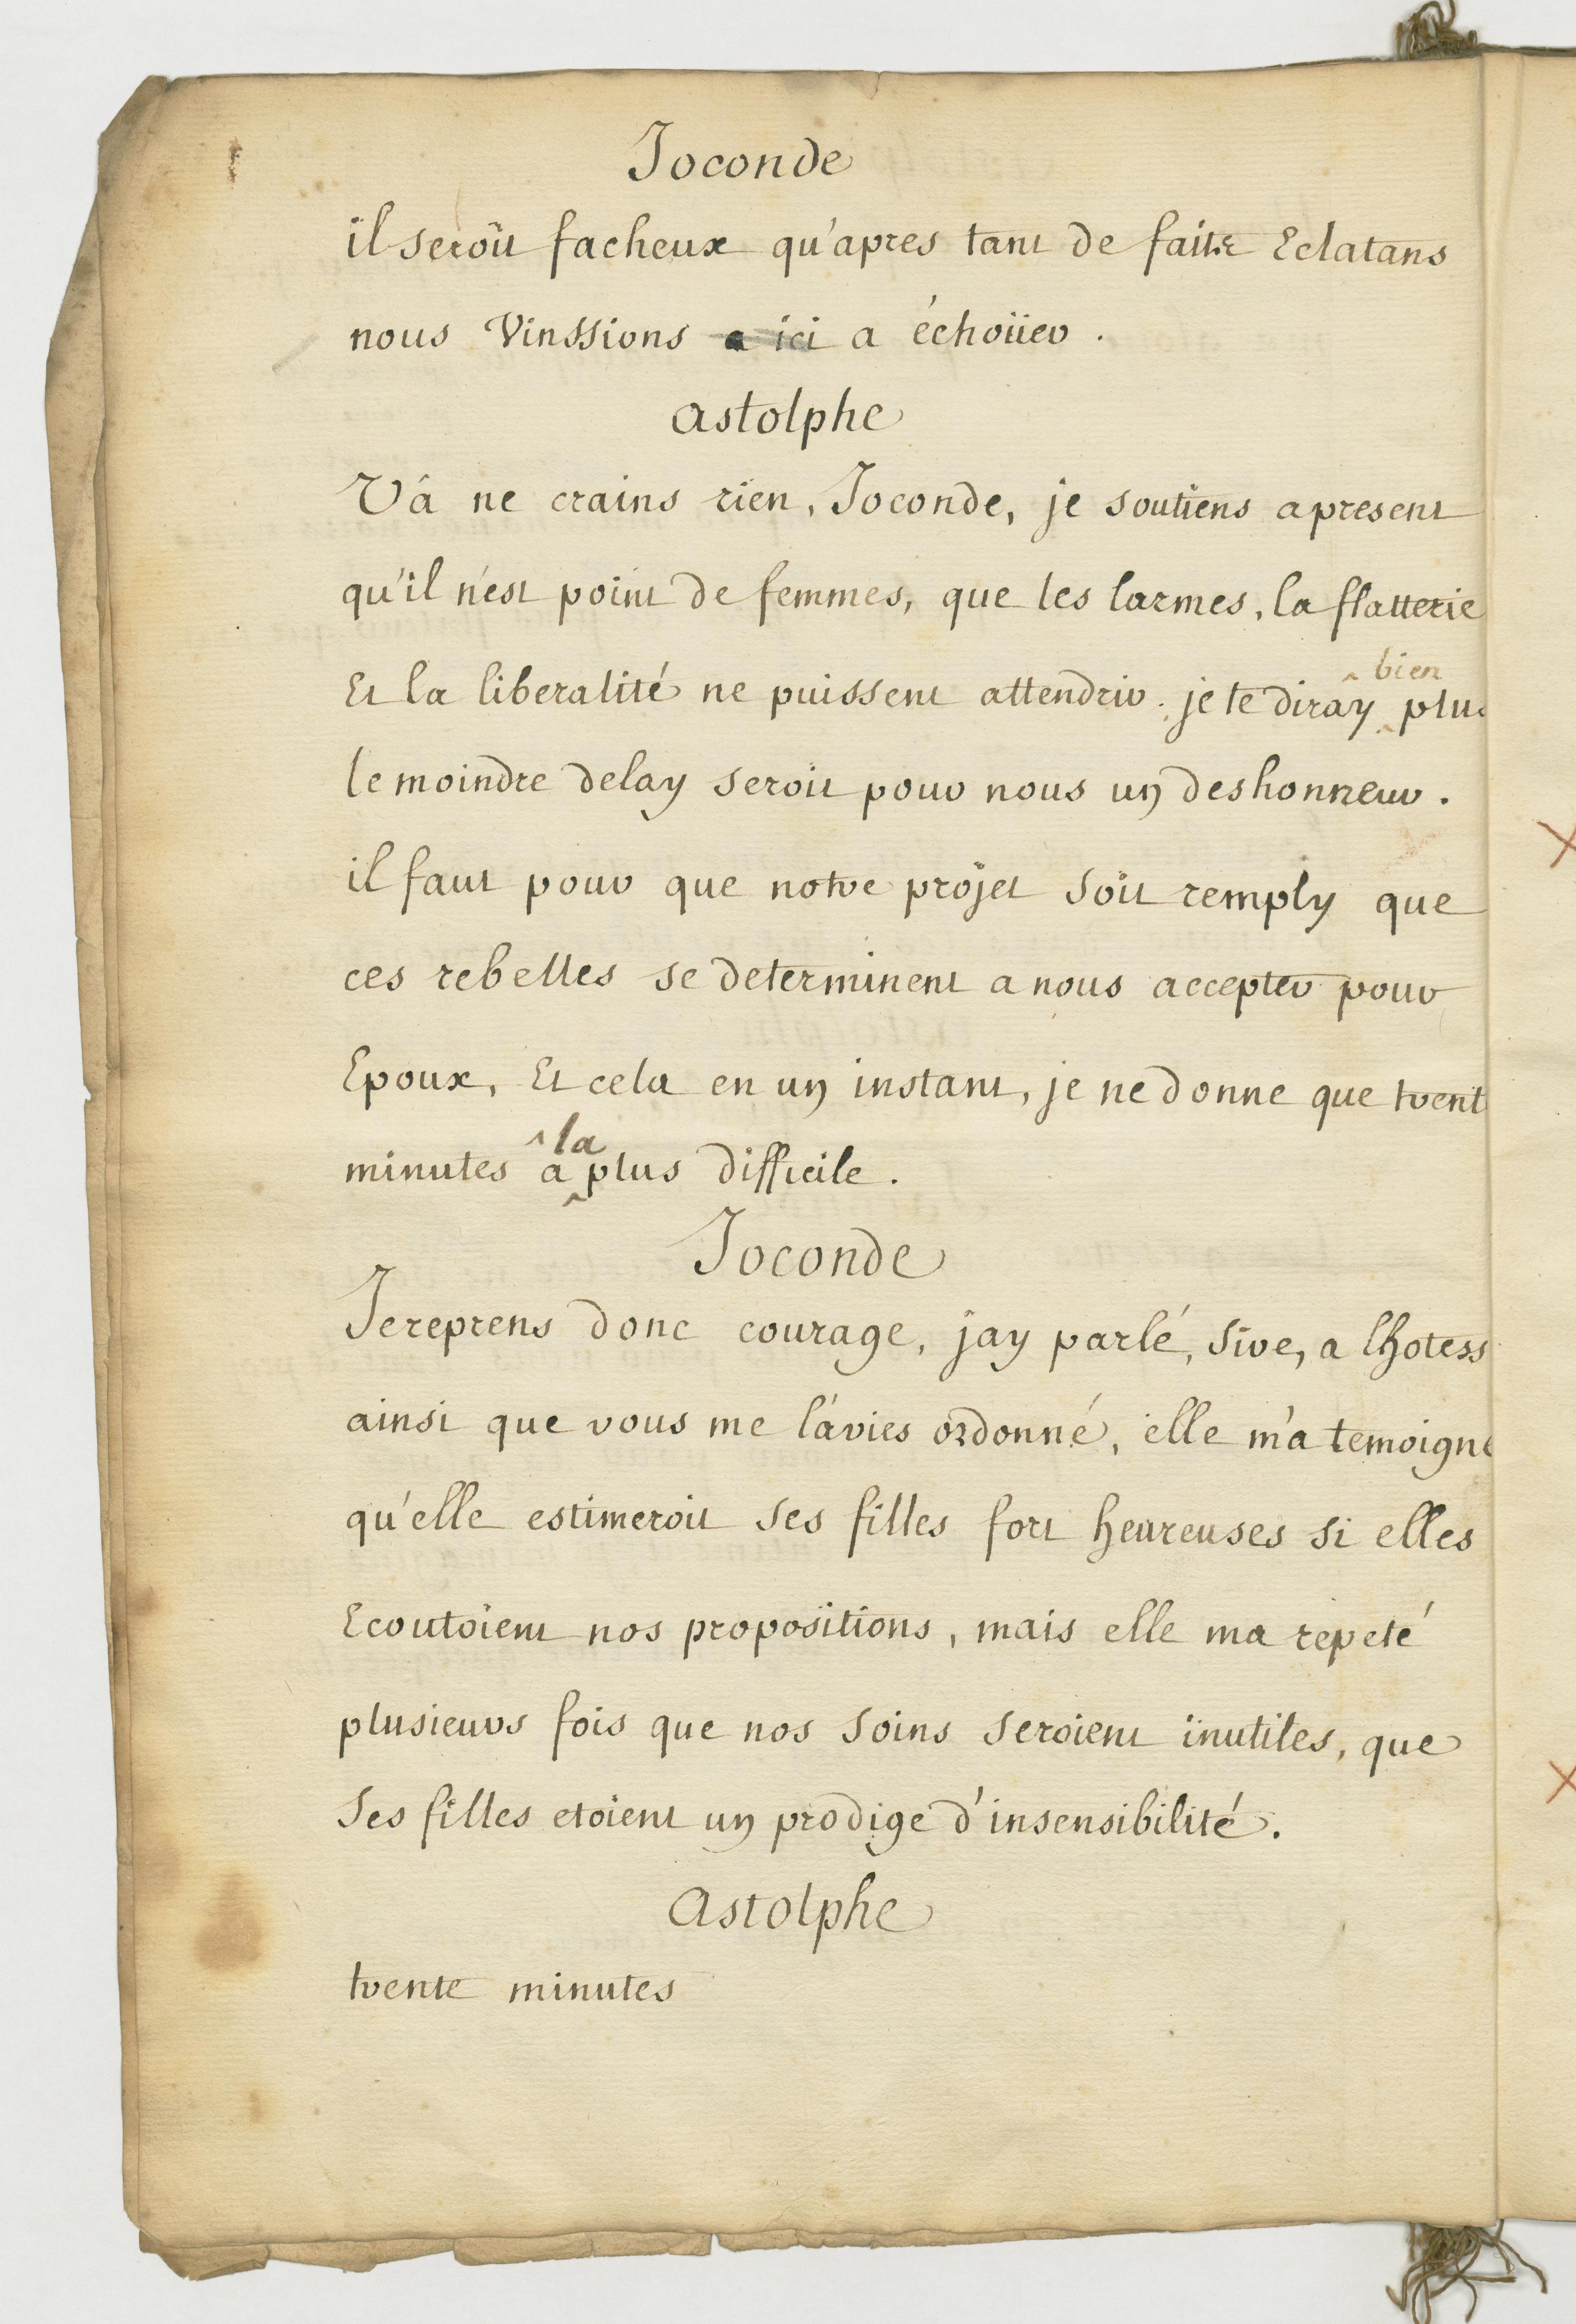 Joconde
il seroit facheux qu'apres tant de faits Eclatans
nous Vinssions a ici a échoüer.
Astolphe
Vâ ne crains rien, Joconde, je soutiens apresent
qu'il n'est point de femmes, que les larmes, la flatterie
Et la liberalité ne puissent attendrir. je te diray bien plus
le moindre delay seroit pour nous un deshonneur.
il faut pour que notre projet soit remply que
ces rebelles se determinent a nous accepter pour
Epoux, Et cela en un instant, je ne donne que trent
minutes a la plus difficile.
Joconde
Je reprens donc courage, jay parlé, Sire, a lhotess
ainsi que vous me l'avies ordonné, elle m'a temoigne
qu'elle estimeroit ses filles fort heureuses si elles
Ecoutoient nos propositions, mais elle ma repeté
plusieurs fois que nos soins seroient inutiles, que
Ses filles etoient un prodige d'insensibilité.
Astolphe
trente minutes